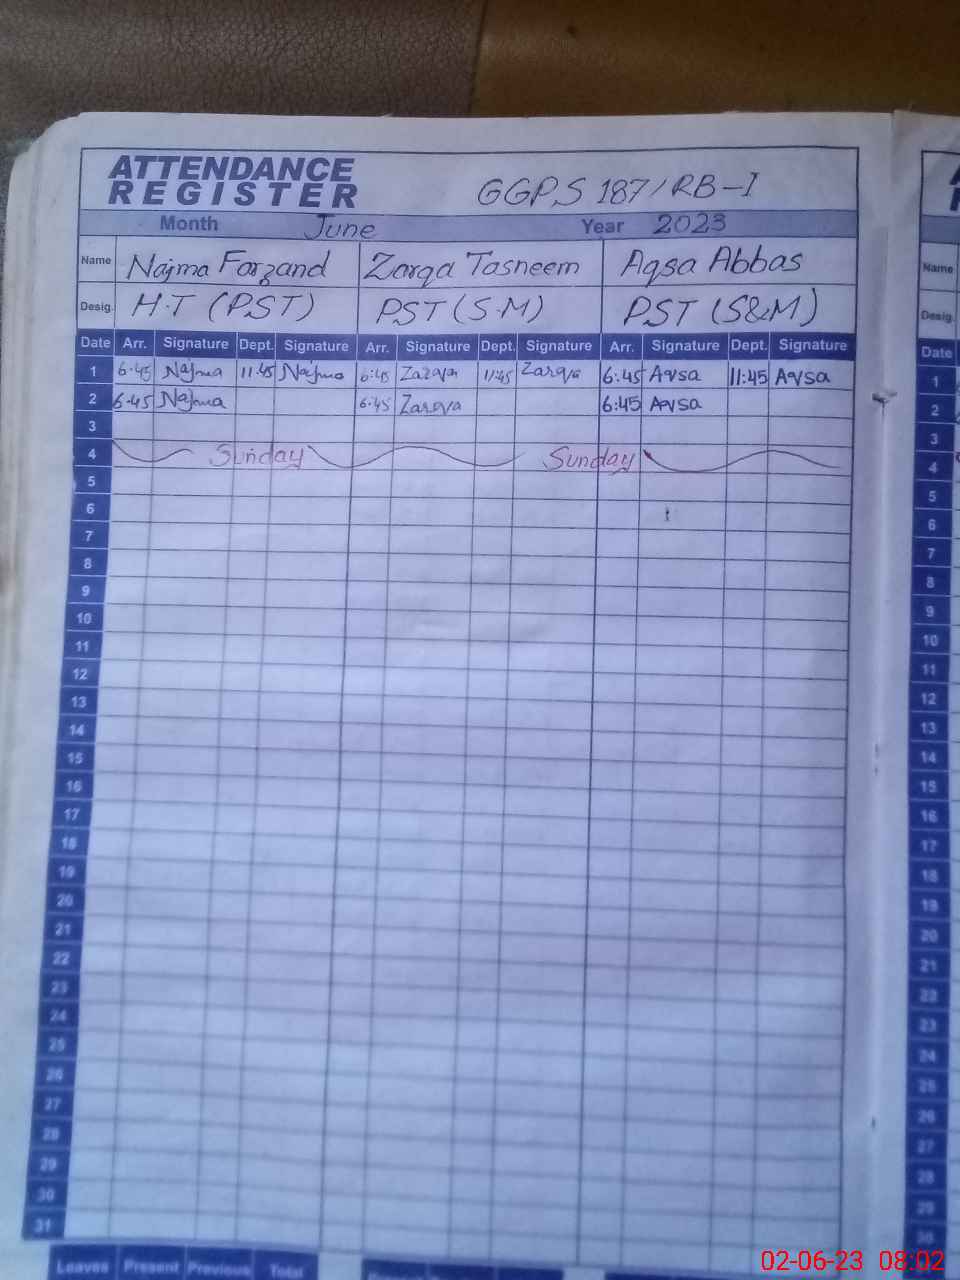 ATTENDANCE
REGISTER
GGPS 187/RB-I
Month June Year 2023
Name Najma Farzand Zarqa Tasneem Aqsa Abbas
Desig. H.T (PST) PST (S.M) PST (S&M)
Date Arr. Signature Dept. Signature Arr. Signature Dept. Signature Arr. Signature Dept. Signature
1 6.45 Najma 11.45 Najma 6:45 Zarqa 11:45 Zarqa 6:45 Aqsa 11:45 Aqsa
2 6.45 Najma 6:45 Zarqa 6:45 Aqsa
3
4 Sunday Sunday
5
6
7
8
9
10
11
12
13
14
15
16
17
18
19
20
21
22
23
24
25
26
27
28
29
30
31
Leaves Present Previous Total
Name
Desig.
Date
1
2
3
4
5
6
7
8
9
10
11
12
13
14
15
16
17
18
19
20
21
22
23
24
25
26
27
28
29
30
02-06-23 08:02